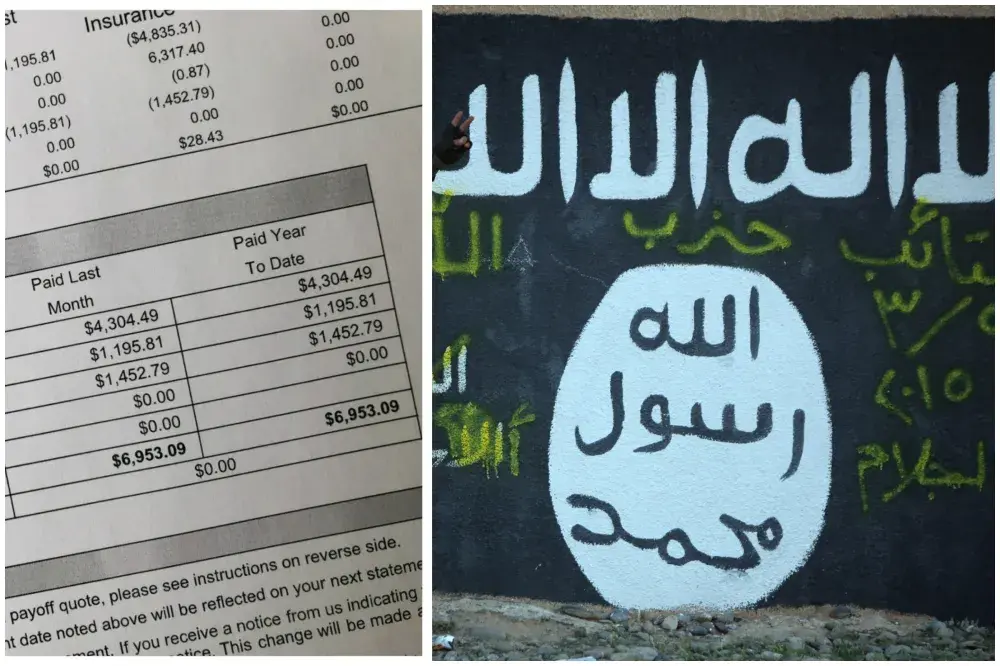 st Insurance
($4,835.31) 0.00
,195.81 6,317.40 0.00
0.00 (0.87) 0.00
0.00 (1,452.79) 0.00
(1,195.81) 0.00 0.00
0.00 $28.43 $0.00
$0.00
Paid Last Paid Year
Month To Date
$4,304.49 $4,304.49
$1,195.81 $1,195.81
$1,452.79 $1,452.79
$0.00 $0.00
$0.00
$6,953.09 $6,953.09
$0.00
payoff quote, please see instructions on reverse side.
nt date noted above will be reflected on your next stateme
ement. If you receive a notice from us indicating
otice. This change will be made a
لا اله الا الله
تائب حزب الله
الله
رسول
محمد
٣/٥
٢٠١٥